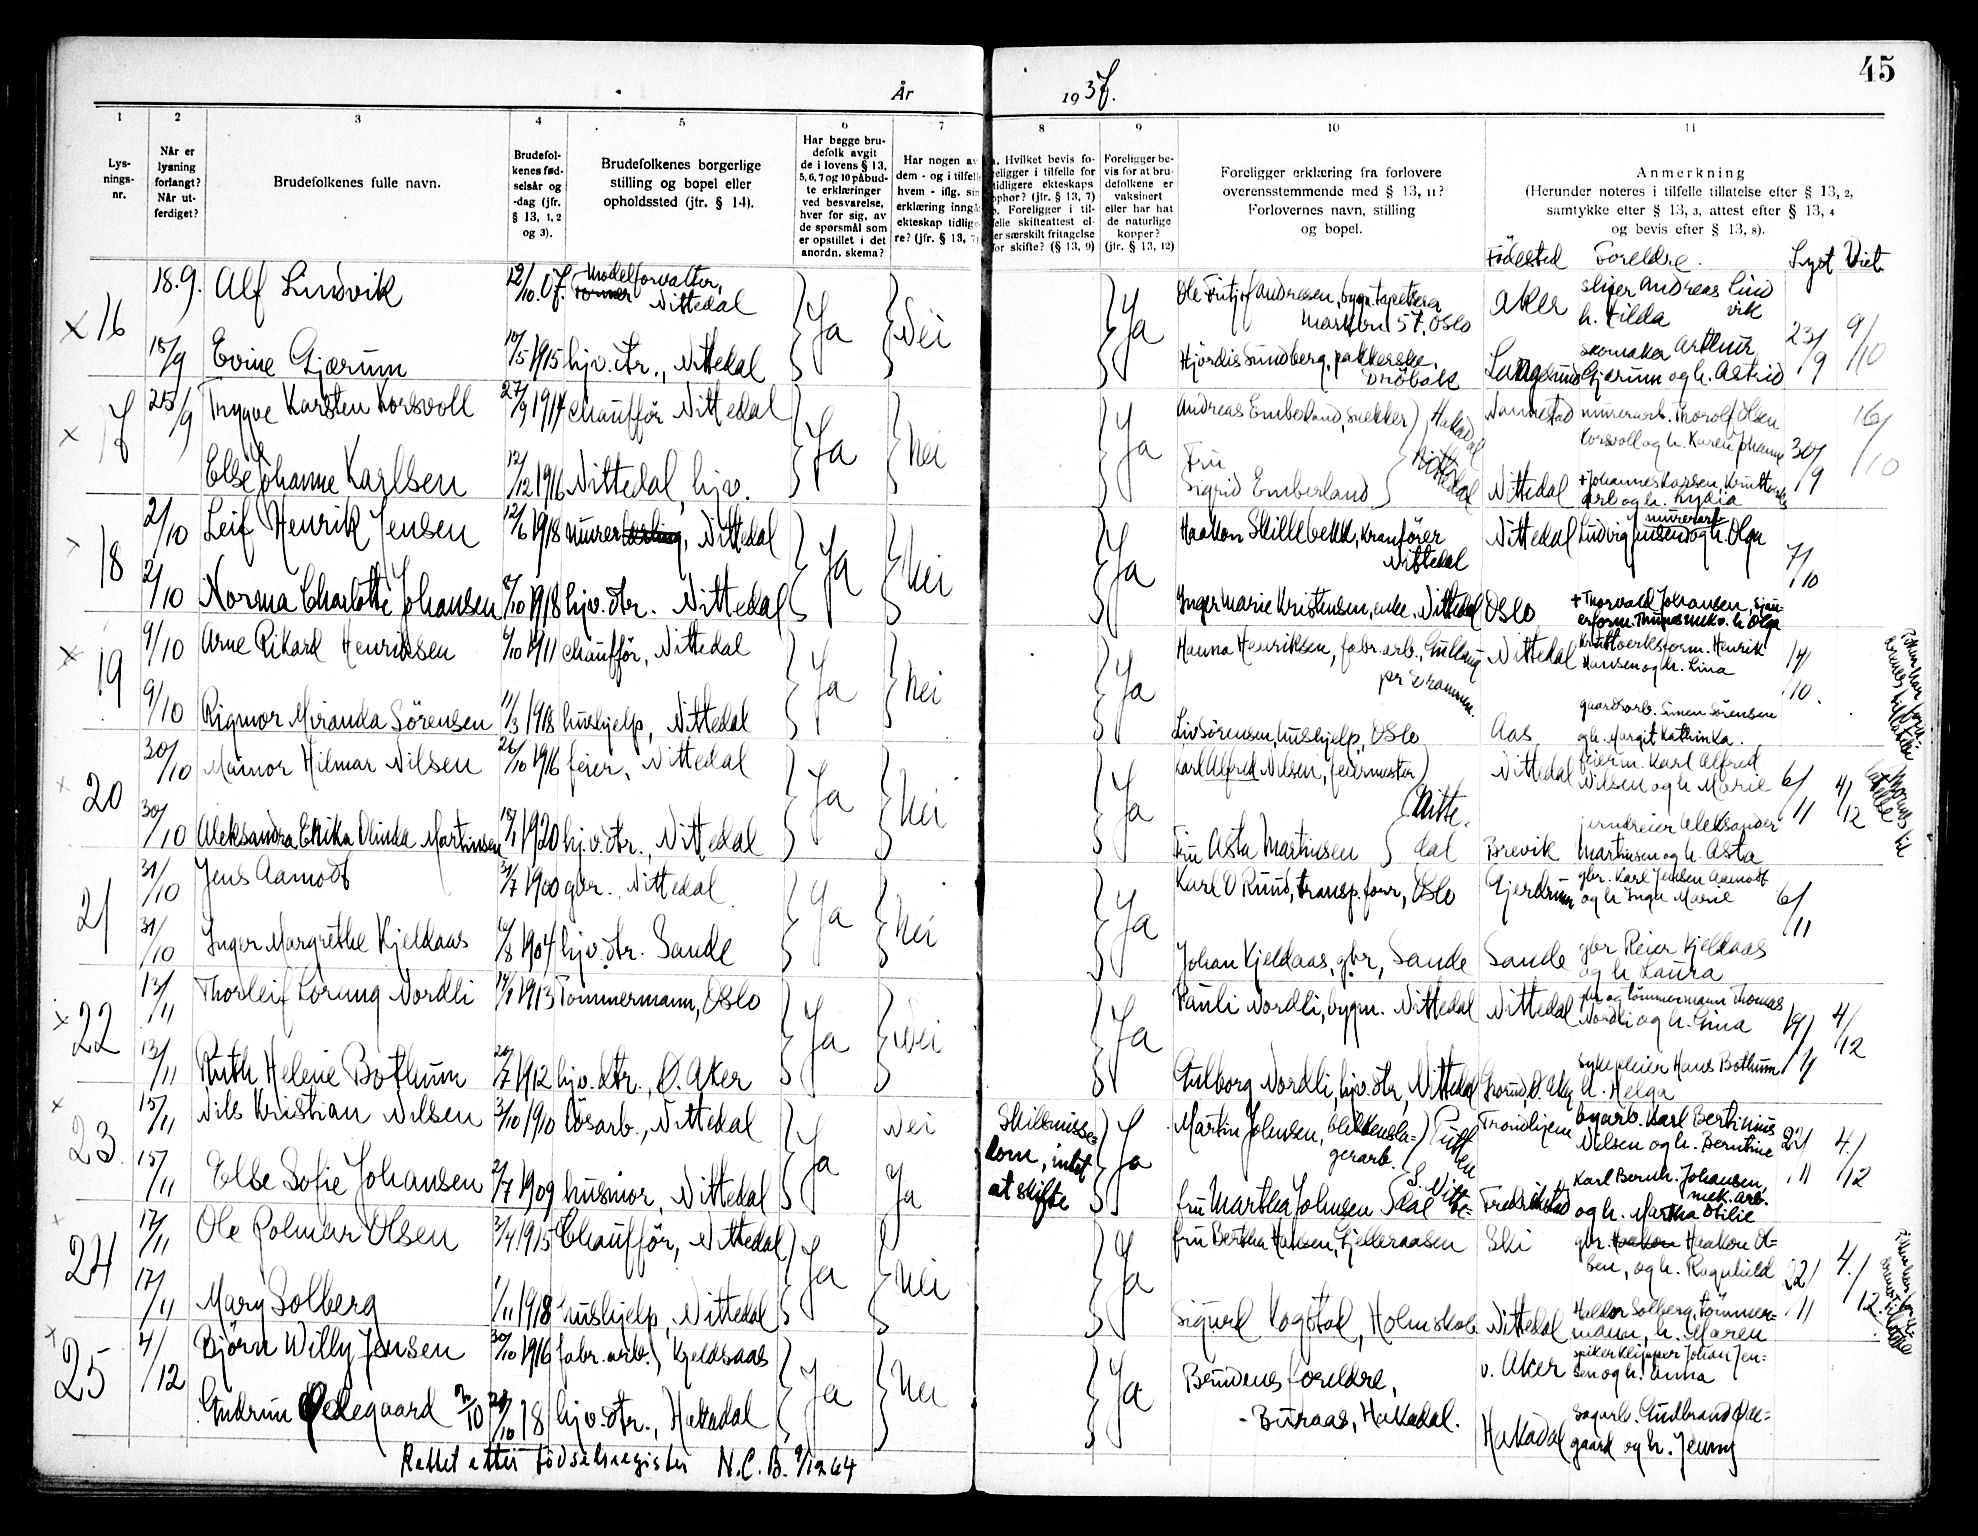 45
År 1937.
1 2 3 4 5 6 7 8 9 10 11
Lys-
nings-
nr.
Når er
lysning
forlangt?
Når ut-
ferdiget?
Brudefolkenes fulle navn.
Brudefol-
kenes fød-
selsår og
-dag (jfr.
§ 13, 1, 2
og 3).
Brudefolkenes borgerlige
stilling og bopel eller
opholdssted (jfr. § 14).
Har begge bru-
defolk avgit
de i lovens § 13,
5, 6, 7 og 10 påbud-
te erklæringer
ved besvarelse,
hver for sig, av
de spørsmål som
er opstillet i det
anordn. skema?
Har nogen av
dem - og i tilfelle
hvem - iflg. sin
erklæring inngå
ekteskap tidlige-
re? (jfr. § 13, 7)
a. Hvilket bevis fo-
religger i tilfelle for
tidligere ekteskaps
ophør? (jfr. § 13, 7)
b. Foreligger i til-
felle skifteattest el-
er særskilt fritagelse
for skifte? (§ 13, 9)
Foreligger be-
vis for at bru-
defolkene er
vaksinert
eller har hat
de naturlige
kopper?
(jfr. § 13, 12)
Foreligger erklæring fra forlovere
overensstemmende med § 13, 11?
Forlovernes navn, stilling
og bopel.
Anmerkning
(Herunder noteres i tilfelle tillatelse efter § 13, 2,
samtykke efter § 13, 3, attest efter § 13, 4
og bevis efter § 13, 8).
Fødested Foreldre. Lyst Viet.
16 18.9. Alf Lindvik 12/10 07. Modelforvalter, Nittedal Ja Nei Ja Ole Fritjof Andresen, bygn. tapetserer Markvn 57, Oslo Aker sliper Andreas Lindvik h. Tilda 23/9 9/10
18/9 Evine Gjærum 10/5 1915 hjv. dtr., Nittedal Hjördis Sundberg, pakkerske, Dröbak Langesund skomaker Arthur Gjærum og h. Astrid
17 25/9 Trygve Karsten Korsvoll 27/9 1914 chaufför Nittedal Ja Nei Ja Andreas Emberland, snekker Hakadal Nittedal Nannestad murerarb. Thorolf Olsen Korsvoll og h. Karen Johanne 30/9 16/10
Else Johanne Karlsen 12/12 1916 Nittedal, hjv. Fru Sigrid Emberland Nittedal + Johannes Karlsen, Kruttverks arb og h. Lydia
18 2/10 Leif Henrik Jensen 12/6 1918 murer, Nittedal Ja Nei Ja Haakon Skillebekk, kranförer Nittedal Nittedal murerarb. Ludvig Jensen og h. Olga 7/10
2/10 Norma Charlotte Johansen 8/10 1918 hjv. dtr. Nittedal Inger Marie Kristensen, enke, Nittedal Oslo + Thorvald Johansen, sjau-
erform. Thunes mek. v. h Olga
19 9/10 Arne Rikard Henriksen 6/10 1911 chaufför, Nittedal Ja Nei Ja Hanna Henriksen, fabr. arb., Gullaug pr Drammen. Nittedal kruttverksform. Henrik Hansen og h. Lina 14/10.
9/10 Rigmor Miranda Sörensen 11/3 1918 hushjelp, Nittedal Liv Sörensen, hushjelp, Oslo Aas gaardsarb. Simen Sörensen og h. Margit Kathinka.
20 30/10 Mainor Hilmar Nilsen 26/10 1916 feier, Nittedal Ja Nei Ja Karl Alfred Nilsen, feiermester Nittedal Nittedal feierm. Karl Alfred Nilsen og h Marie 6/11 4/12
30/10 Aleksandra Erika Olinda Martinsen 18/1 1920 hjv. dtr., Nittedal Fru Asta Martinsen Brevik jerndreier Aleksander Martinsen og h. Asta
21 31/10 Jens Aamodt 31/7 1900 gbr. Nittedal Ja Nei Ja Karl O Ruud, transp. forr, Oslo Gjerdrum gbr. Karl Jensen Aamodt og h Inga Marie 6/11
31/10 Inger Margrethe Kjeldaas 6/8 1904 hjv. dtr. Sande Johan Kjeldaas, gbr, Sande Sande gbr Reier Kjeldaas og h Laura
22 13/11 Thorleif Lorang Nordli 14/1 1913 Tömmermann, Oslo Ja Nei Ja Pauli Nordli, bygn. Nittedal Nittedal gbr og tömmermann Thomas Nordli og h. Lina 19/11 4/12
13/11 Ruth Helene Bothum 20/7 1912 hjv. dtr., Ö. Aker Gulborg Nordli, hjv. dtr, Nittedal Grorud Ö. Aker sykepleier Hans Bothum h. Helga
23 15/11 Nils Kristian Nilsen 3/10 1910 lösarb., Nittedal Ja Nei Skilsmisse-
dom, intet
at skifte Ja Martin Johnsen, blikkensla-
gerarb. Trondhjem byarb. Karl Bertinius Nilsen og h. Berntine 22/11 4/12
15/11 Else Sofie Johansen 2/7 1909 husmor, Nittedal Ja fru Martha Johnsen Nittedal Fredrikstad Karl Bernh. Johansen, mek. arb. og h. Martha Otilie
24 17/11 Ole Rolmar Olsen 3/4 1915 Chaufför, Nittedal Ja Nei Ja fru Bertha Hansen, Fjelleraasen Ski gbr. Haakon Ol-
sen, og h. Ragnhild 22/11 4/12.
17/11 Mary Solberg 1/11 1918 hushjelp, Nittedal Sigurd Kogstad, Nittedal Haldor Solberg, tömmer-
mann, h. Maren
25 4/12 Björn Willy Jensen 30/10 1916 fabr. arb., Kjeldsaas Ja Nei Ja Brudens foreldre, v. Aker spikerklipper Johan Jen-
sen og h. Anna
Gudrun Ødegaard 20/10 18 hjv. dtr., Hakadal - Buraas, Hakadal. Hakadal sagarb. Gudbrand Öde-
gaard og h. Jenny
Rettet etter födselsregister N.C.B. 9/12 64